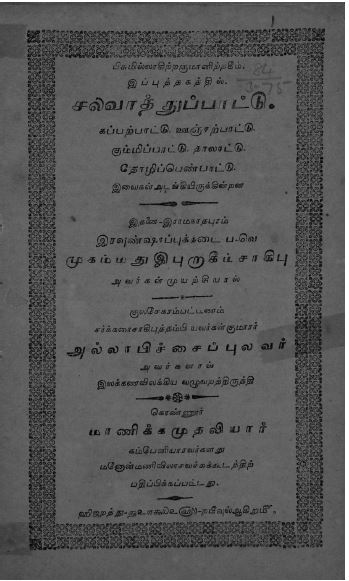 பிசுமில்லாகிற்றகுமானிற்றகீம்.
இப்புத்தகத்தில்.
சலவாத்துப்பாட்டு.
கப்பற்பாட்டு. ஊஞ்சற்பாட்டு.
கும்மிப்பாட்டு. தாலாட்டு.
தோழிப்பெண்பாட்டு.
இவைகள் அடங்கியிருக்கின்றன
இஃதை-இராமநாதபுரம்
இரவுண்ஷாப்புக்கடை
முகம்மது இபுறுகீம்சாகிபு
அவர்கள் முயற்சியால்
குலசேகரம்பட்டணம்
சர்க்கரைசாகிபுத்தம்பியவர்கள் குமாரர்
அல்லாபிச்சைப்புலவர்
அவர்களால்
இலக்கணவிலக்கிய வழுவறத்திருத்தி
கொண்ணூர்
மாணிக்கமுதலியார்
கம்பேனியாரவர்களது
மனோன்மணிவிலாசவச்சுக்கூடத்திற்
பதிப்பிக்கப்பட்டது.